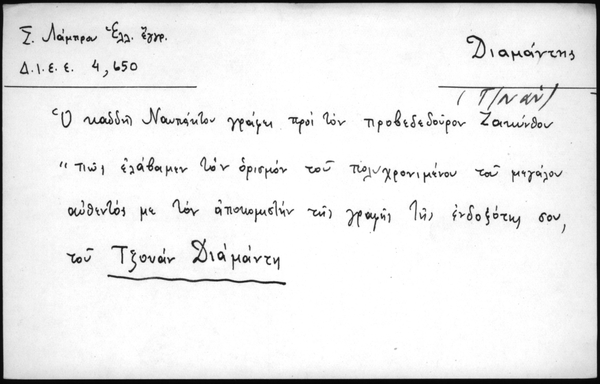 Σ. Λάμπρου Ἑλλ. ἔγγρ.
Δ.Ι.Ε.Ε. 4, 650
Διαμάντης
Ὁ καδδῆς Ναυπάκτου γράφει πρὸς τὸν προβεδεδοῦρον Ζακύνθου
"πῶς ἐλάβαμεν τὸν ὁρισμόν τοῦ πολυχρονιμένου τοῦ μεγάλου
αὐθεντός με τὸν ἀποκομιστήν τῆς γραφῆς τῆς ἐνδοξότης σου,
τοῦ Τζουάν Διαμάντη